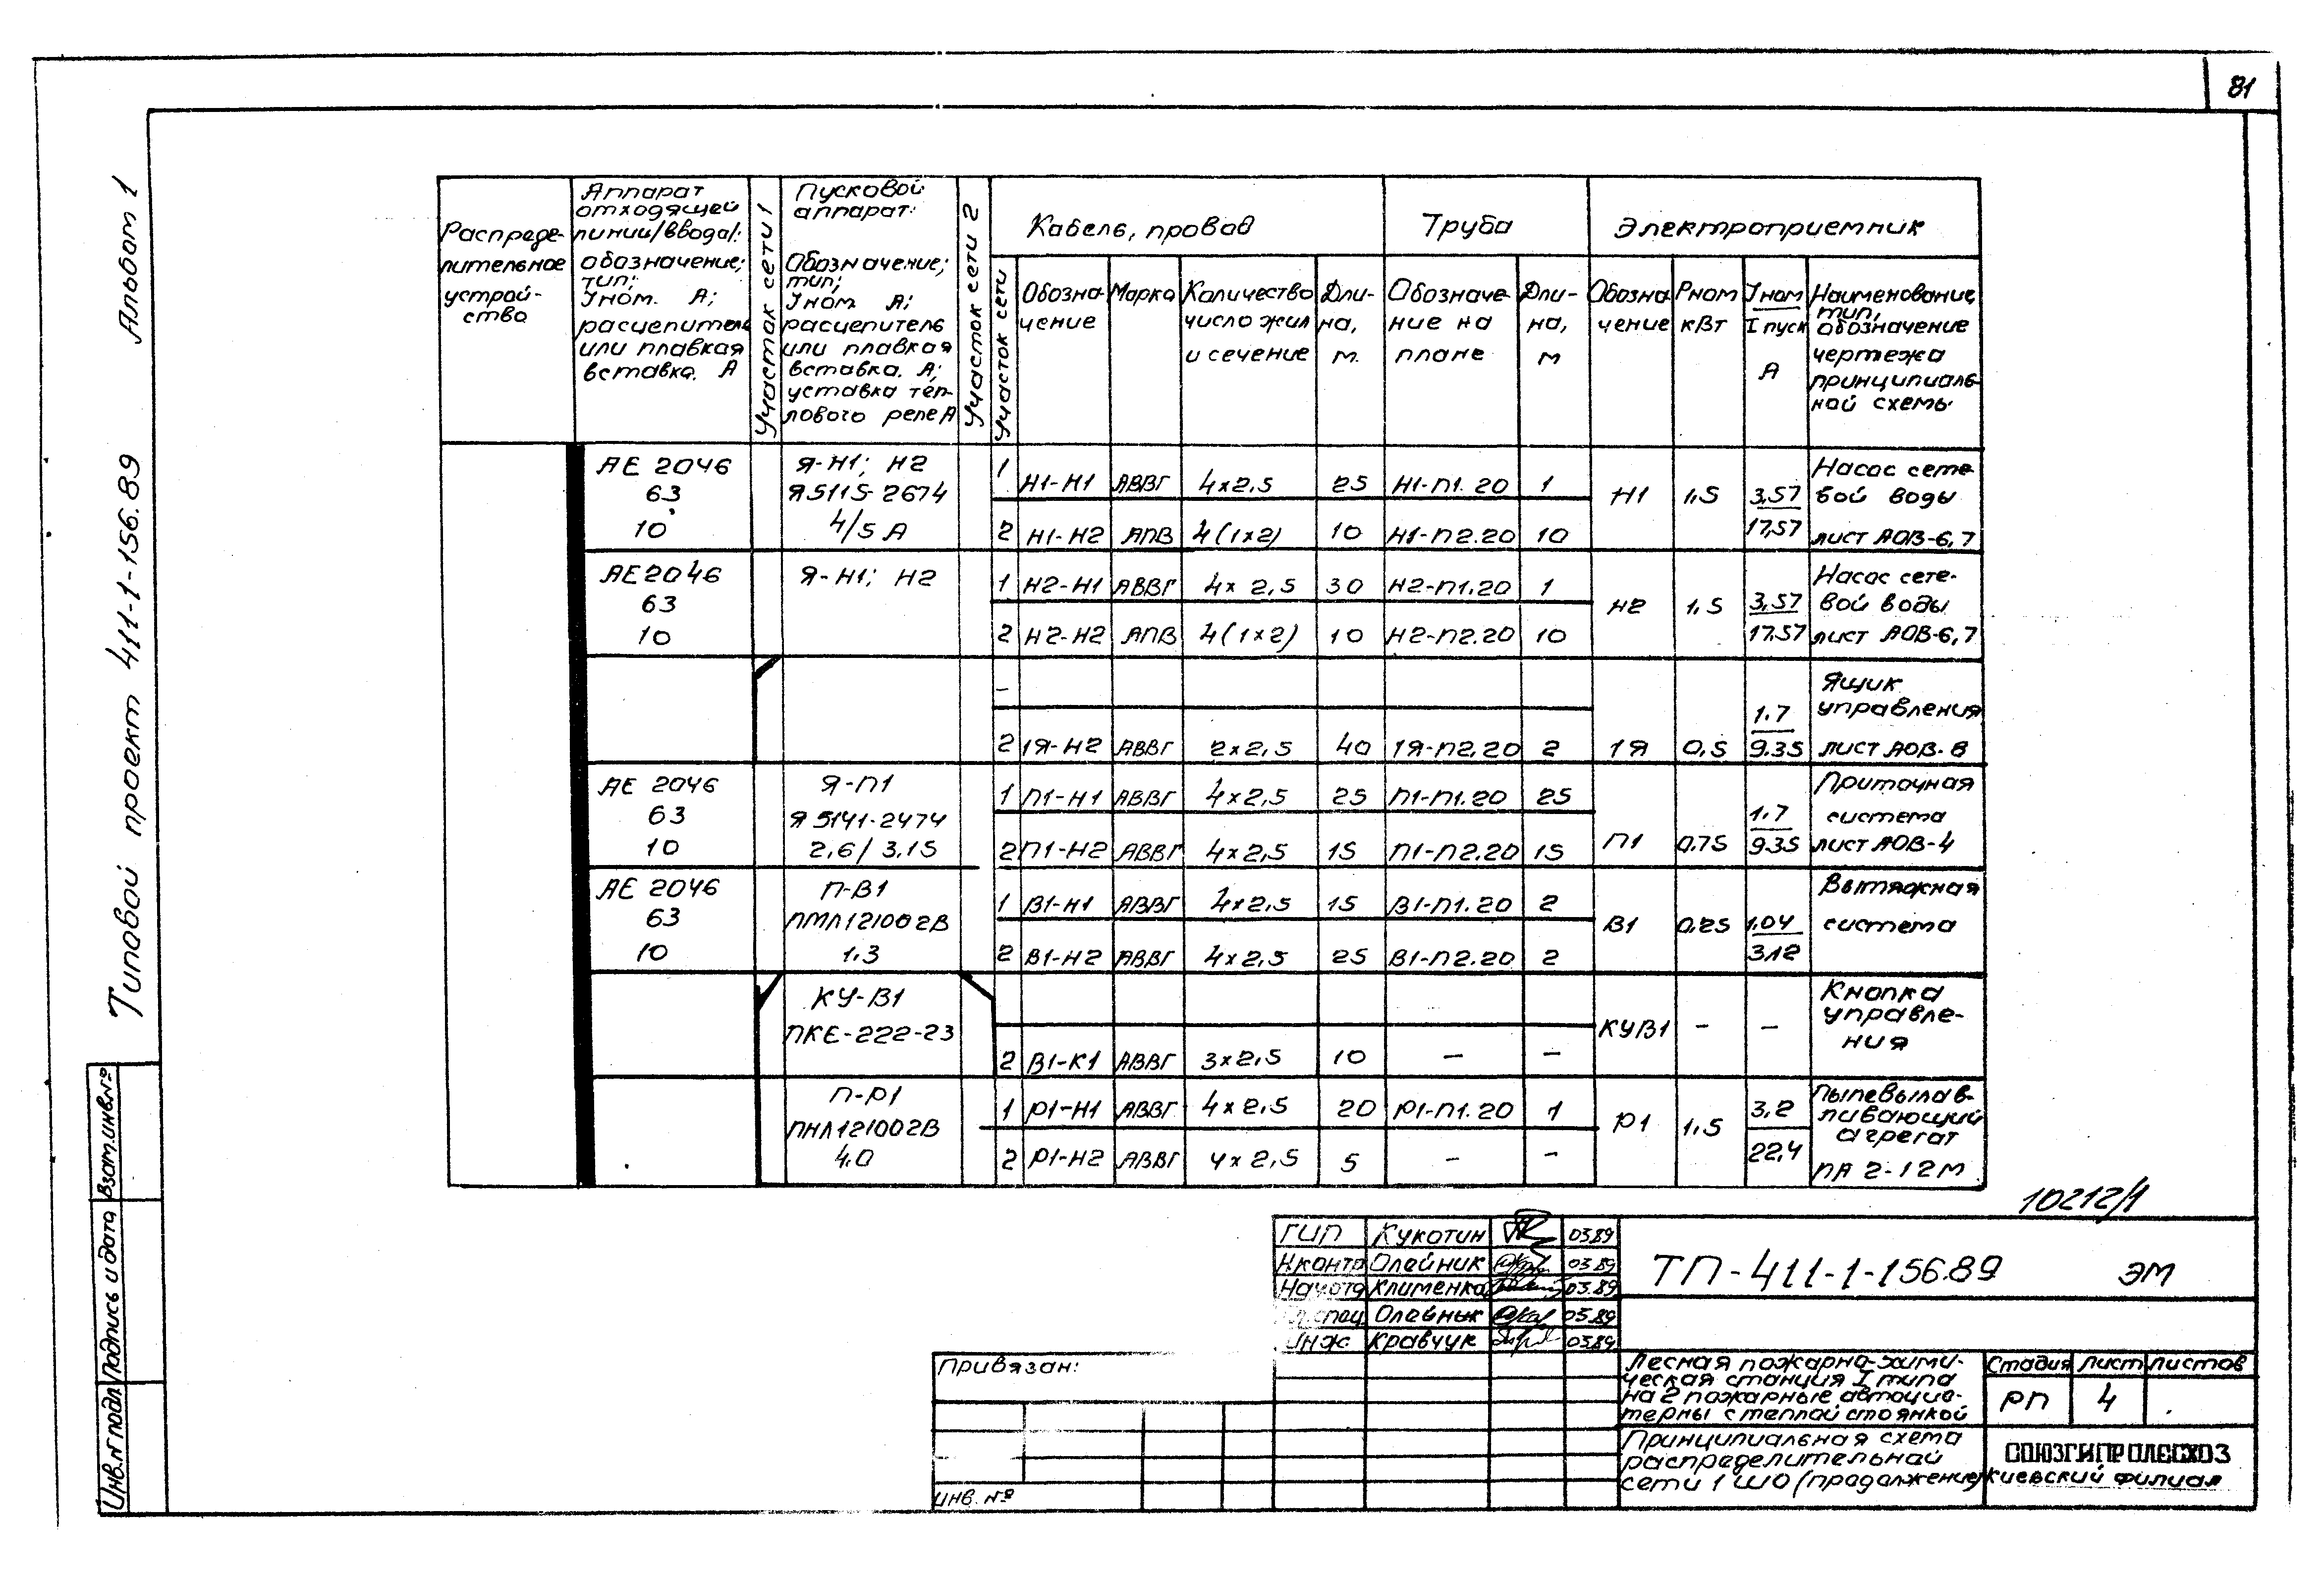 81
Альбом 1
Типовой проект 411-1-156.89
Взам.инв.№
Подпись и дата
Инв.№ подл
Распреде-
лительное
устрой-
ство
Аппарат
отходящей
линии/ввода/:
обозначение;
тип;
Iном. А;
расцепитель
или плавкая
вставка. А
Участок сети 1
Пусковой
аппарат:
Обозначение;
тип;
Iном А;
расцепитель
или плавкая
вставка. А;
уставка теп-
лового реле А
Участок сети 2
Кабель, провод
Труба
Электроприемник
Участок сети
Обозна-
чение
Марка
Количество
число жил
и сечение
Дли-
на,
м.
Обозначе-
ние на
плане
Дли-
на,
м
Обозна
чение
Рном
кВт
Iном
I пуск
А
Наименование
тип,
обозначение
чертежа
принципиаль-
ной схемы
АЕ 2046
63
10
Я-Н1; Н2
Я5115-2674
4/5 А
1 Н1-Н1 АВВГ 4х2,5 25 Н1-П1.20 1
2 Н1-Н2 АПВ 4(1х2) 10 Н1-П2.20 10
Н1 1,5 3,57
17,57
Насос сете-
вой воды
лист АОВ-6,7
АЕ2046
63
10
Я-Н1; Н2
1 Н2-Н1 АВВГ 4х2,5 30 Н2-П1.20 1
2 Н2-Н2 АПВ 4(1х2) 10 Н2-П2.20 10
Н2 1,5 3,57
17.57
Насос сете-
вой воды
лист АОВ-6,7
–
2 1Я-Н2 АВВГ 2х2,5 40 1Я-П2.20 2
1Я 0,5 1.7
9.35
Ящик
управления
лист АОВ-8
АЕ 2046
63
10
Я-П1
Я5141-2474
2,6/3,15
1 П1-Н1 АВВГ 4х2,5 25 П1-П1.20 25
2 П1-Н2 АВВГ 4х2,5 15 П1-П2.20 15
П1 0.75 1.7
9.35
Приточная
система
лист АОВ-4
АЕ 2046
63
10
П-В1
ПМЛ121002В
1.3
1 В1-Н1 АВВГ 4х2,5 15 В1-П1.20 2
2 В1-Н2 АВВГ 4х2,5 25 В1-П2.20 2
В1 0,25 1.04
3.12
Вытяжная
система
КУ-В1
ПКЕ-222-23
2 В1-К1 АВВГ 3х2,5 10 – –
КУВ1 – –
Кнопка
управле-
ния
П-Р1
ПНЛ121002В
4.0
1 Р1-Н1 АВВГ 4х2,5 20 Р1-П1.20 1
2 Р1-Н2 АВВГ 4х2,5 5 – –
Р1 1,5 3,2
22,4
Пылевылав-
ливающий
агрегат
ПА 2-12М
10212/1
ГИП Кукотин 03.89
Н.контр Олейник 03.89
Нач.отд Клименко 03.89
спец. Олейник 03.89
Инж. Кравчук 03.89
ТП-411-1-156.89 ЭМ
Привязан:
Инв. №
Лесная пожарно-хими-
ческая станция I типа
на 2 пожарные автоцис-
терны с теплой стоянкой
Стадия Лист Листов
РП 4
Принципиальная схема
распределительной
сети 1 ШО (продолжение)
СОЮЗГИПРОЛЕСХОЗ
Киевский филиал